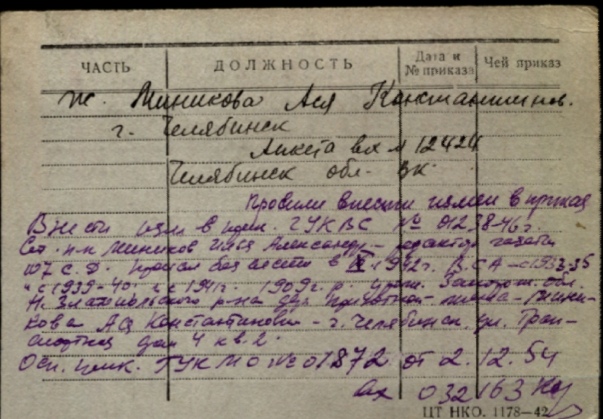 ЧАСТЬ ДОЛЖНОСТЬ Дата и № приказа Чей приказ
ж. Миникова Ася Константинов.
г. Челябинск
Анкета вх № 12424
Челябинск обл. ВК
внести измен в приказ
Внести изм в прик. ГУКВС № 01238-46г.
Миников Александр – редактор газеты
107 с.д. пропал без вести в 1942г. В СА – с 1933-35
с 1939-40 и с 1941г. 1909г.р. урож. Запорож. обл.
Н. Златопольского р-на жена – Мини-
кова Ася Константиновн – г. Челябинск. ул. Тран-
дом 4 кв. 2.
Осн. прик. ГУК МО № 01872 от 2.12.54
вх 032163
ЦТ НКО. 1178–42